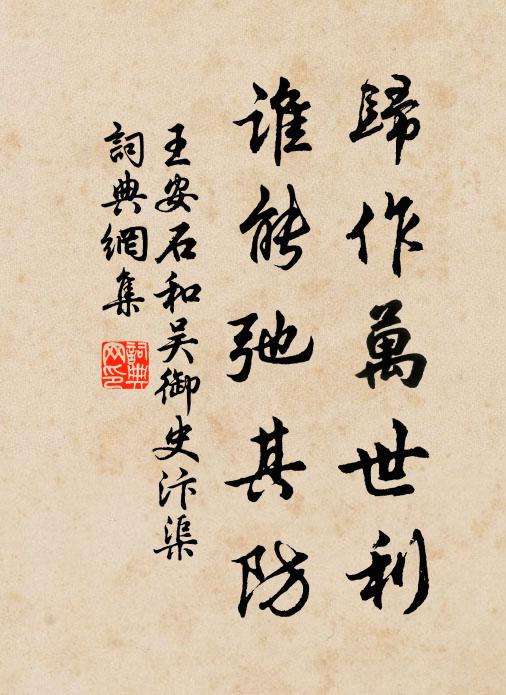 歸作萬世利
誰能弛其防
王安石和吴御史汴渠
詞典網集
詞典網印